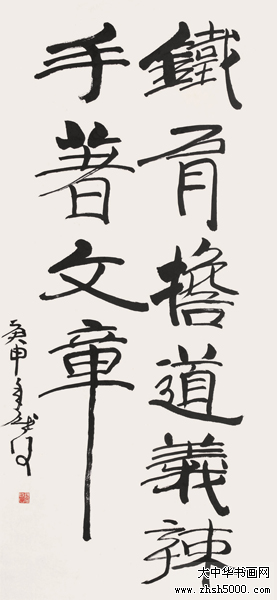 鐵肩擔道義辣
手著文章
庚申
大中华书画网
www.zhsh5000.com